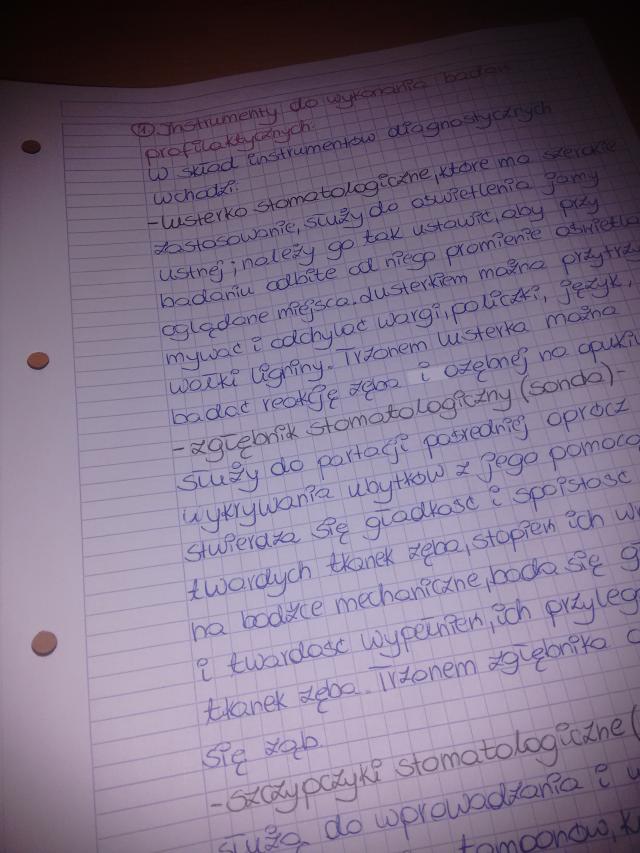 ① Instrumenty do wykonania badań
profilaktycznych:
W skład instrumentów diagnostycznych
wchodzi:
-lusterko stomatologiczne, które ma szerokie
zastosowanie, służy do oświetlenia jamy
ustnej; należy go tak ustawić, aby przy
badaniu odbite od niego promienie oświetla
oglądane miejsca. Lusterkiem można przytrzy
mywać i odchylać wargi, policzki, język,
wałki ligniny. Trzonem lusterka można
badać reakcję zęba i ozębnej na opuki
-zgłębnik stomatologiczny (sonda)-
służy do partacji pośredniej oprócz
wykrywania ubytków z jego pomocą
stwierdza się gładkość i spoistość
twardych tkanek zęba, stopień ich w
na bodźce mechaniczne, bada się g
i twardość wypełnień, ich przyleg
tkanek zęba. Trzonem zgłębnika o
się ząb.
-szczypczyki stomatologiczne (
służą do wprowadzania i w
tamponów, k